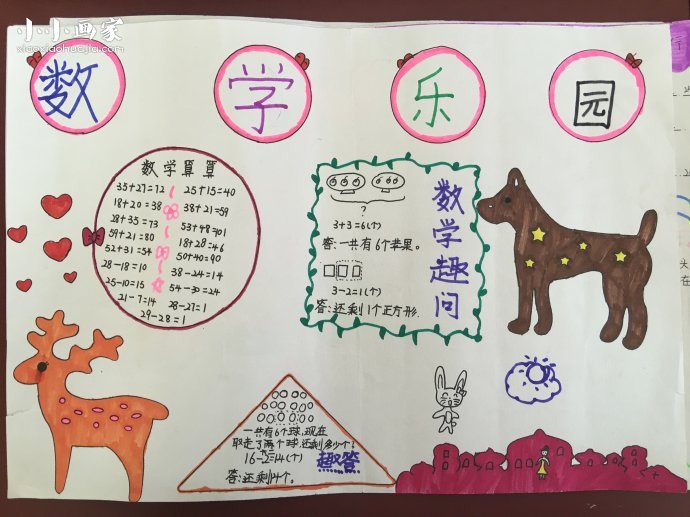 小小画家
xiaoxiaohuajia.com
数学乐园
数学算算
35+27=12 25+15=40
18+20=38 38+21=59
28+35=73 53+48=101
59+21=80 18+28=46
52+31=54 50+40=90
28-18=10 38-24=14
25-10=15 54-30=24
21-7=14 28-27=1
29-28=1
?
3+3=6(个)
答:一共有6个苹果。
3-2=1(个)
答:还剩1个正方形.
数学趣问
一共有6个球,现在
取走了两个球,还剩多少个?
16-2=14(个)
趣答
答:还剩14个.